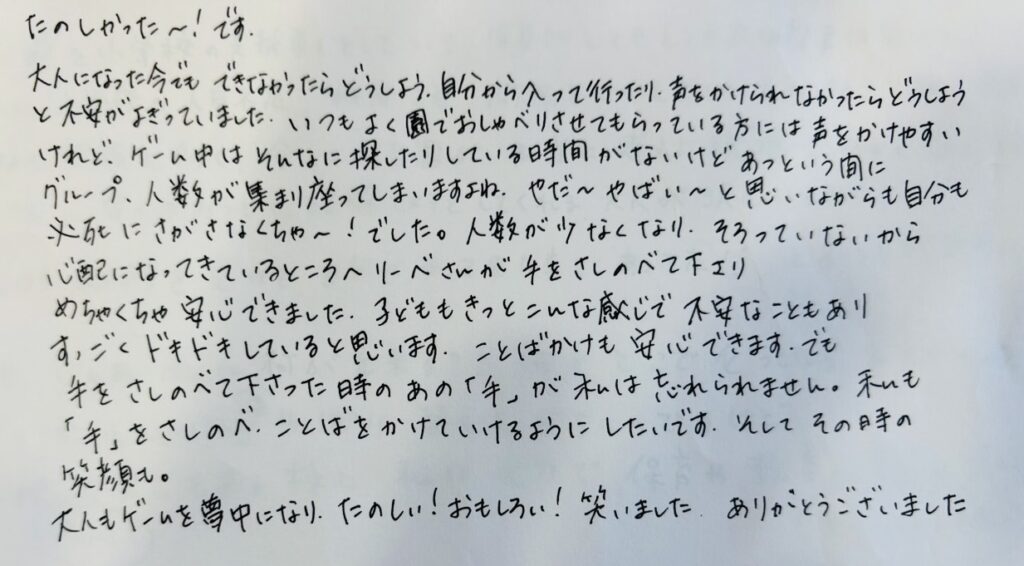 たのしかった～！です.
大人になった今でも できなかったらどうしよう. 自分から入って行ったり. 声をかけられなかったらどうしよう
と 不安がよぎっていました. いつもよく園でおしゃべりさせてもらっている方には 声をかけやすい
けれど、ゲーム中は そんなに探したりしている時間がないけど あっという間に
グループ、人数が集まり座ってしまいますよね. やだ～やばい～と思いながらも自分も
必死に さがさなくちゃ～！でした。人数が少なくなり. そろっていないから
心配になってきているところへ リーベさんが 手をさしのべて下さり
めちゃくちゃ 安心できました. 子どももきっとこんな感じで 不安なこともあり
すっごく ドキドキしていると思います. ことばかけも 安心できます. でも
手を さしのべて下さった時の あの「手」が 私は 忘れられません。私も
「手」をさしのべ. ことばをかけていけるように したいです. そして その時の
笑顔も。
大人もゲームを夢中になり. たのしい！おもしろい！笑いました. ありがとうございました